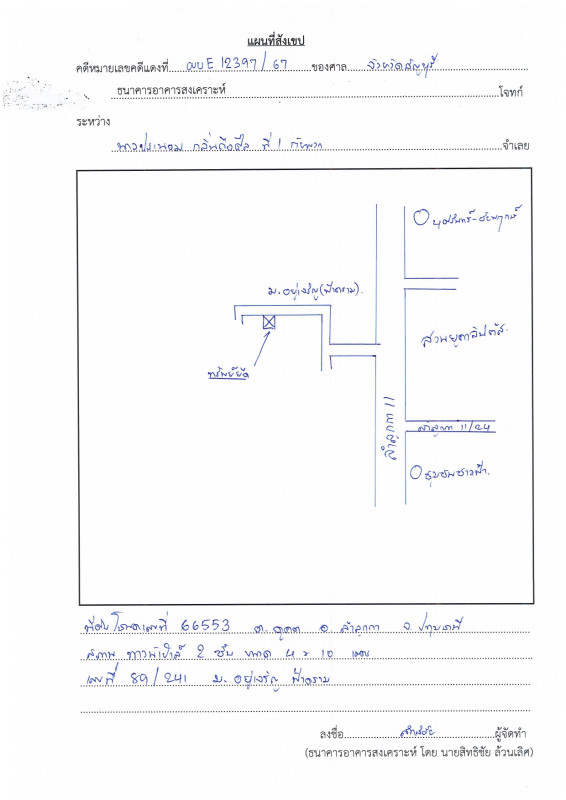 แผนที่สังเขป
คดีหมายเลขคดีแดงที่ ผบE 12397/67 ของศาล จังหวัดธัญบุรี
ธนาคารอาคารสงเคราะห์ โจทก์
ระหว่าง
ที่ 1 กับพวก จำเลย
ม.อยู่เจริญ(ฟ้าคราม).
ทรัพย์ยึด
สวนยูคาลิปตัส
ลำลูกกา 11
ลำลูกกา 11/24
ชุมชนชาวฟ้า.
ที่ดินโฉนดเลขที่ 66553 ต. คูคต อ. ลำลูกกา จ. ปทุมธานี
สภาพ ทาวน์เฮ้าส์ 2 ชั้น ขนาด 4 x 10 เมตร
เลขที่ 89/241 ม. อยู่เจริญ ฟ้าคราม
ลงชื่อ ผู้จัดทำ
(ธนาคารอาคารสงเคราะห์ โดย นายสิทธิชัย ล้วนเลิศ)